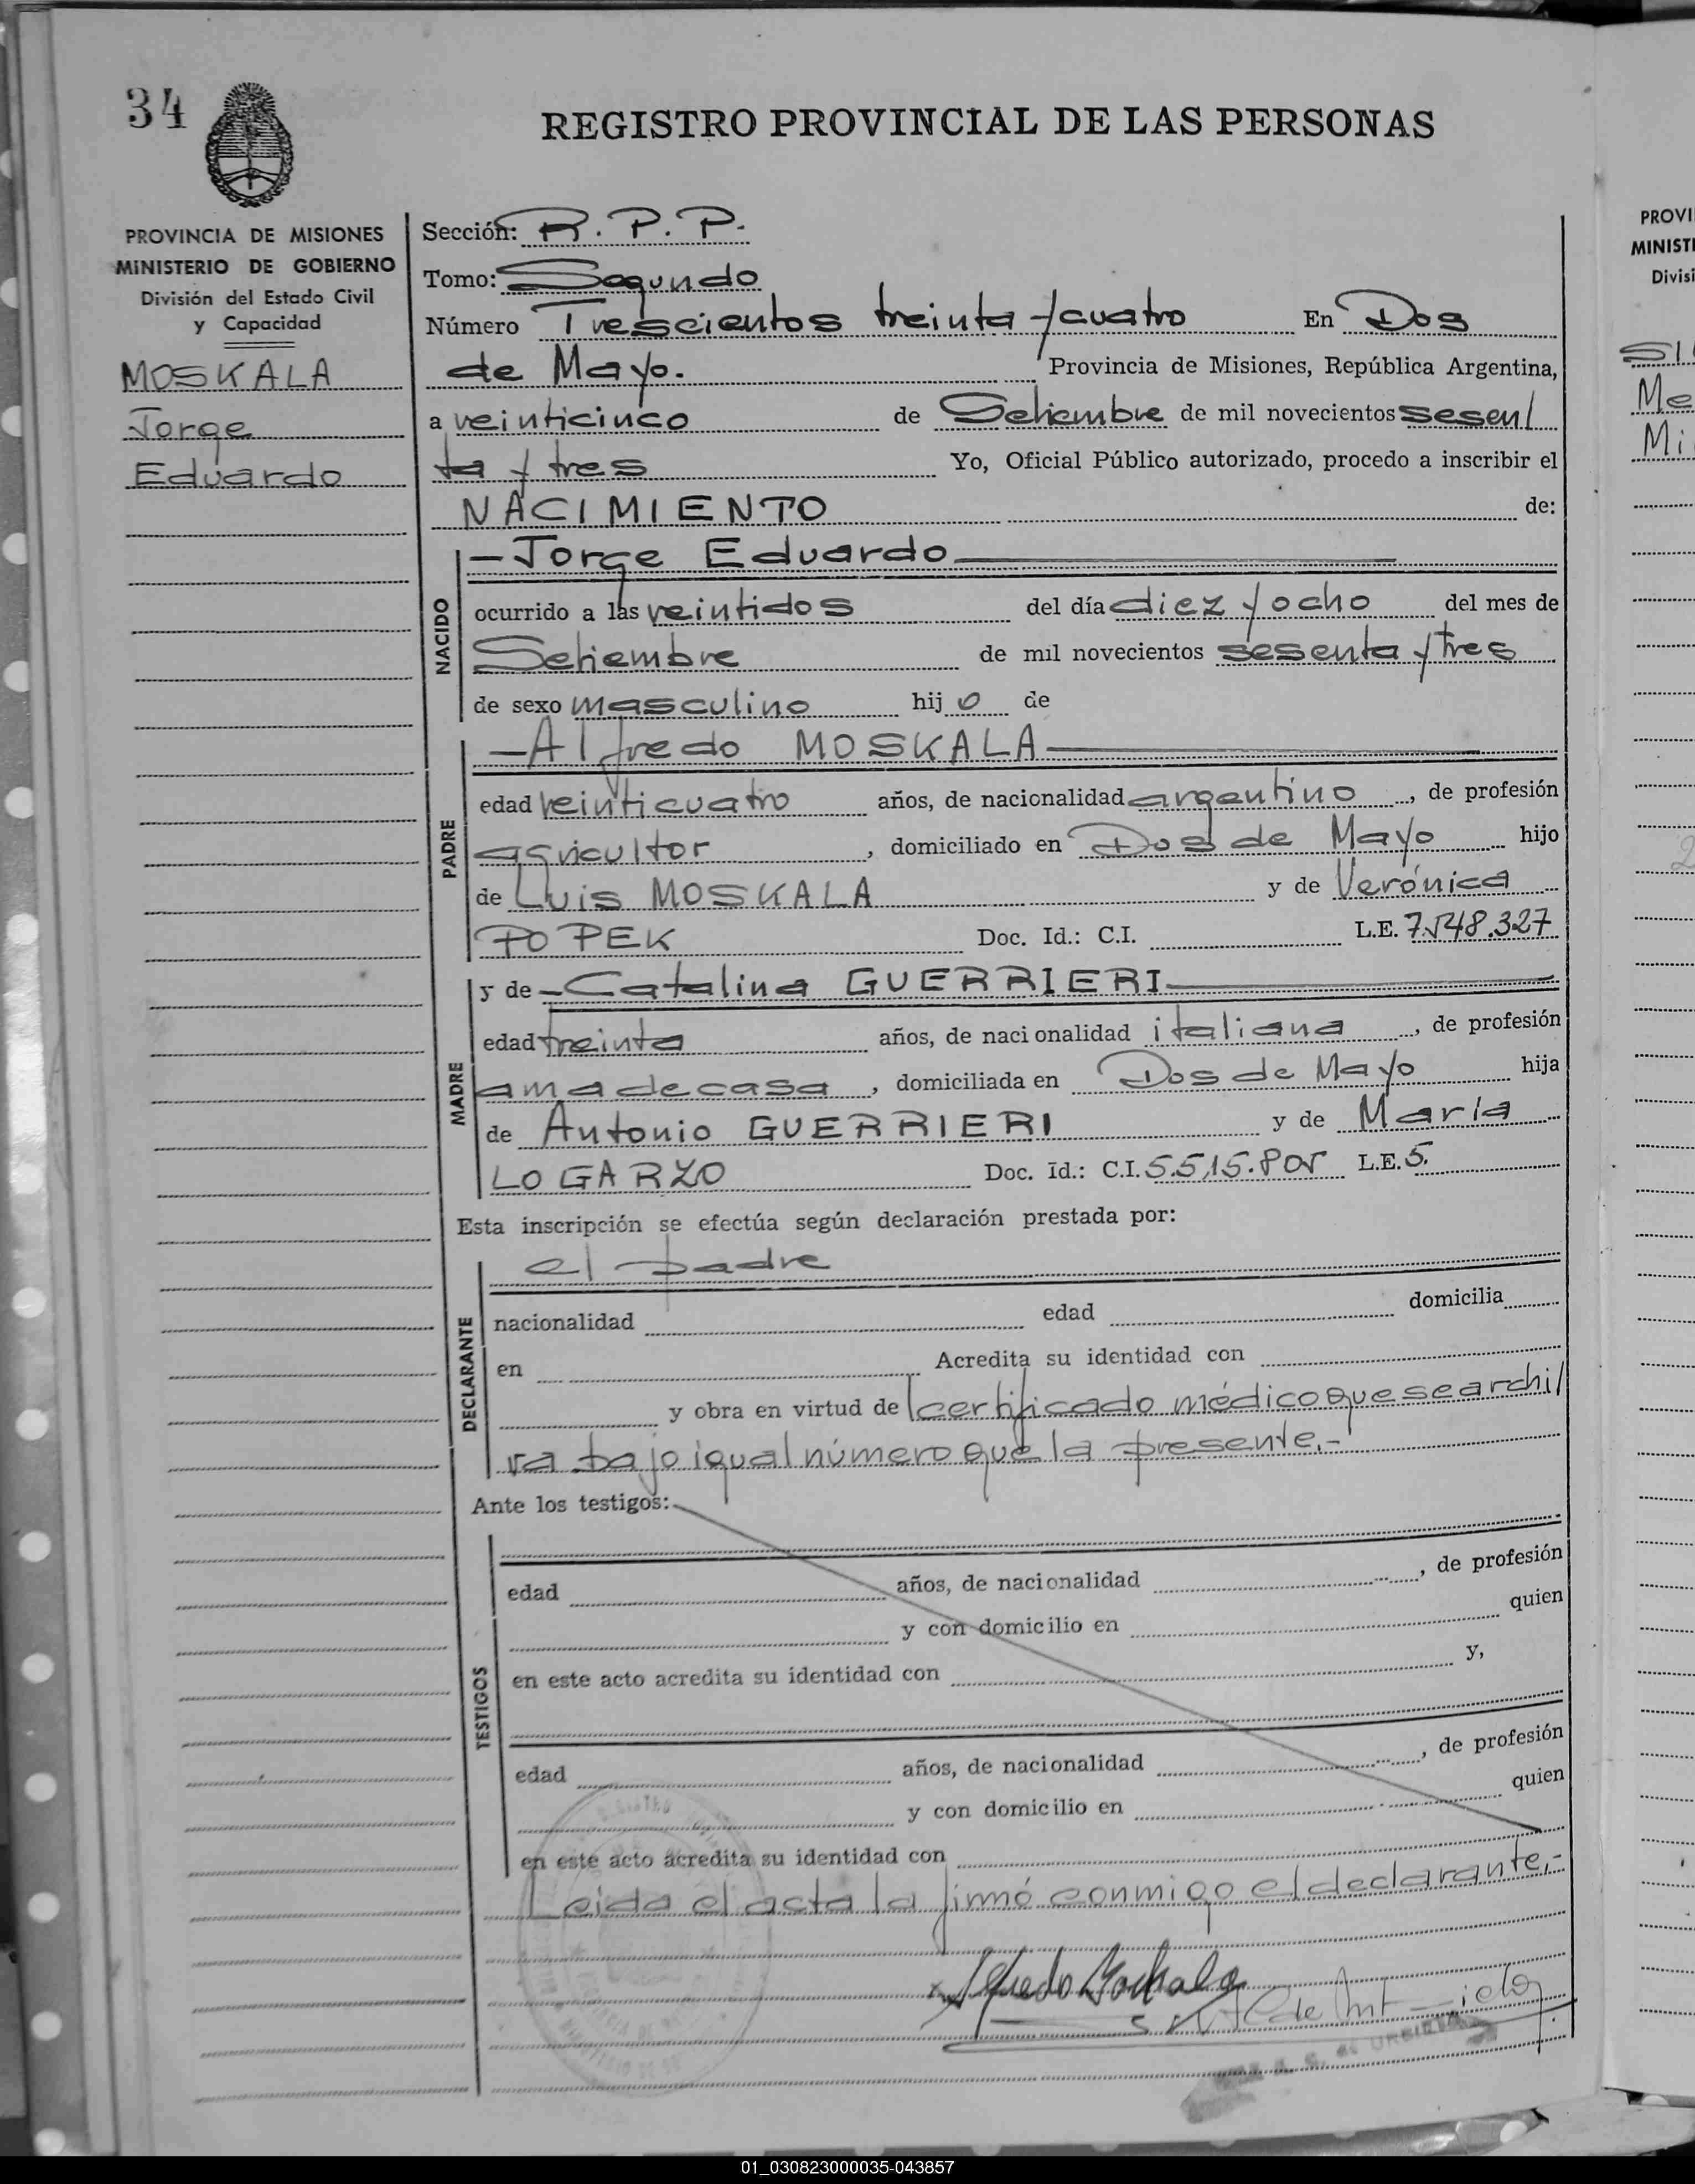 34
REGISTRO PROVINCIAL DE LAS PERSONAS
PROVINCIA DE MISIONES
MINISTERIO DE GOBIERNO
División del Estado Civil
y Capacidad
MOSKALA
Jorge
Eduardo
Sección: R. P. P.
Tomo: Segundo
Número Trescientos treinta y cuatro En Dos
de Mayo. Provincia de Misiones, República Argentina,
a veinticinco de Setiembre de mil novecientos sesen/
ta y tres Yo, Oficial Público autorizado, procedo a inscribir el
NACIMIENTO de:
NACIDO
—Jorge Eduardo
ocurrido a las veintidos del día diez y ocho del mes de
Setiembre de mil novecientos sesenta y tres
de sexo masculino hijo de
PADRE
—Alfredo MOSKALA
edad veinticuatro años, de nacionalidad argentino, de profesión
agricultor, domiciliado en Dos de Mayo hijo
de Luis MOSKALA y de Verónica
POPEK Doc. Id.: C.I. L.E. 7.548.327
MADRE
y de —Catalina GUERRIERI
edad treinta años, de nacionalidad italiana, de profesión
ama de casa, domiciliada en Dos de Mayo hija
de Antonio GUERRIERI y de María
LO GARZO Doc. Id.: C.I. 5.515.805 L.E.
Esta inscripción se efectúa según declaración prestada por:
DECLARANTE
el padre
nacionalidad edad domicilia
en Acredita su identidad con
y obra en virtud de certificado médico que se archi/
va bajo igual número que la presente.-
Ante los testigos:
TESTIGOS
edad años, de nacionalidad , de profesión
y con domicilio en quien
en este acto acredita su identidad con y,
edad años, de nacionalidad , de profesión
y con domicilio en quien
en este acto acredita su identidad con
Leida el acta la firmó conmigo el declarante.-
Alfredo Moskala
PROVI
MINISTE
Divisi
Me
Mi
01_030823000035-043857